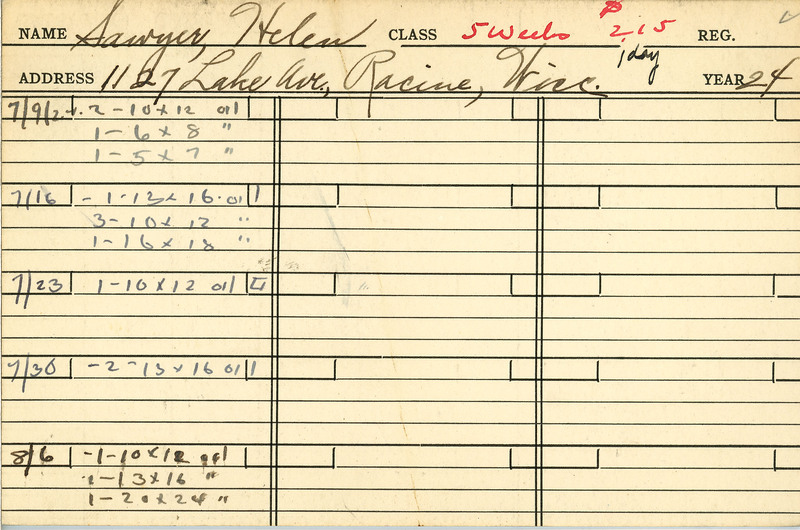 NAME Sawyer, Helen CLASS 5 Weeks $215 REG. ✓
1 day
ADDRESS 1127 Lake Ave., Racine, Wisc. YEAR 24
7/9/24. 2-10x12 oil
1-6x8 "
1-5x7 "
7/16 -1-13x16 oil I
3-10x12 "
1-16x18 "
7/23 1-10x12 oil II
7/30 -2-13x16 oil I
8/6 -1-10x12 oil
1-13x16 "
1-20x24 "